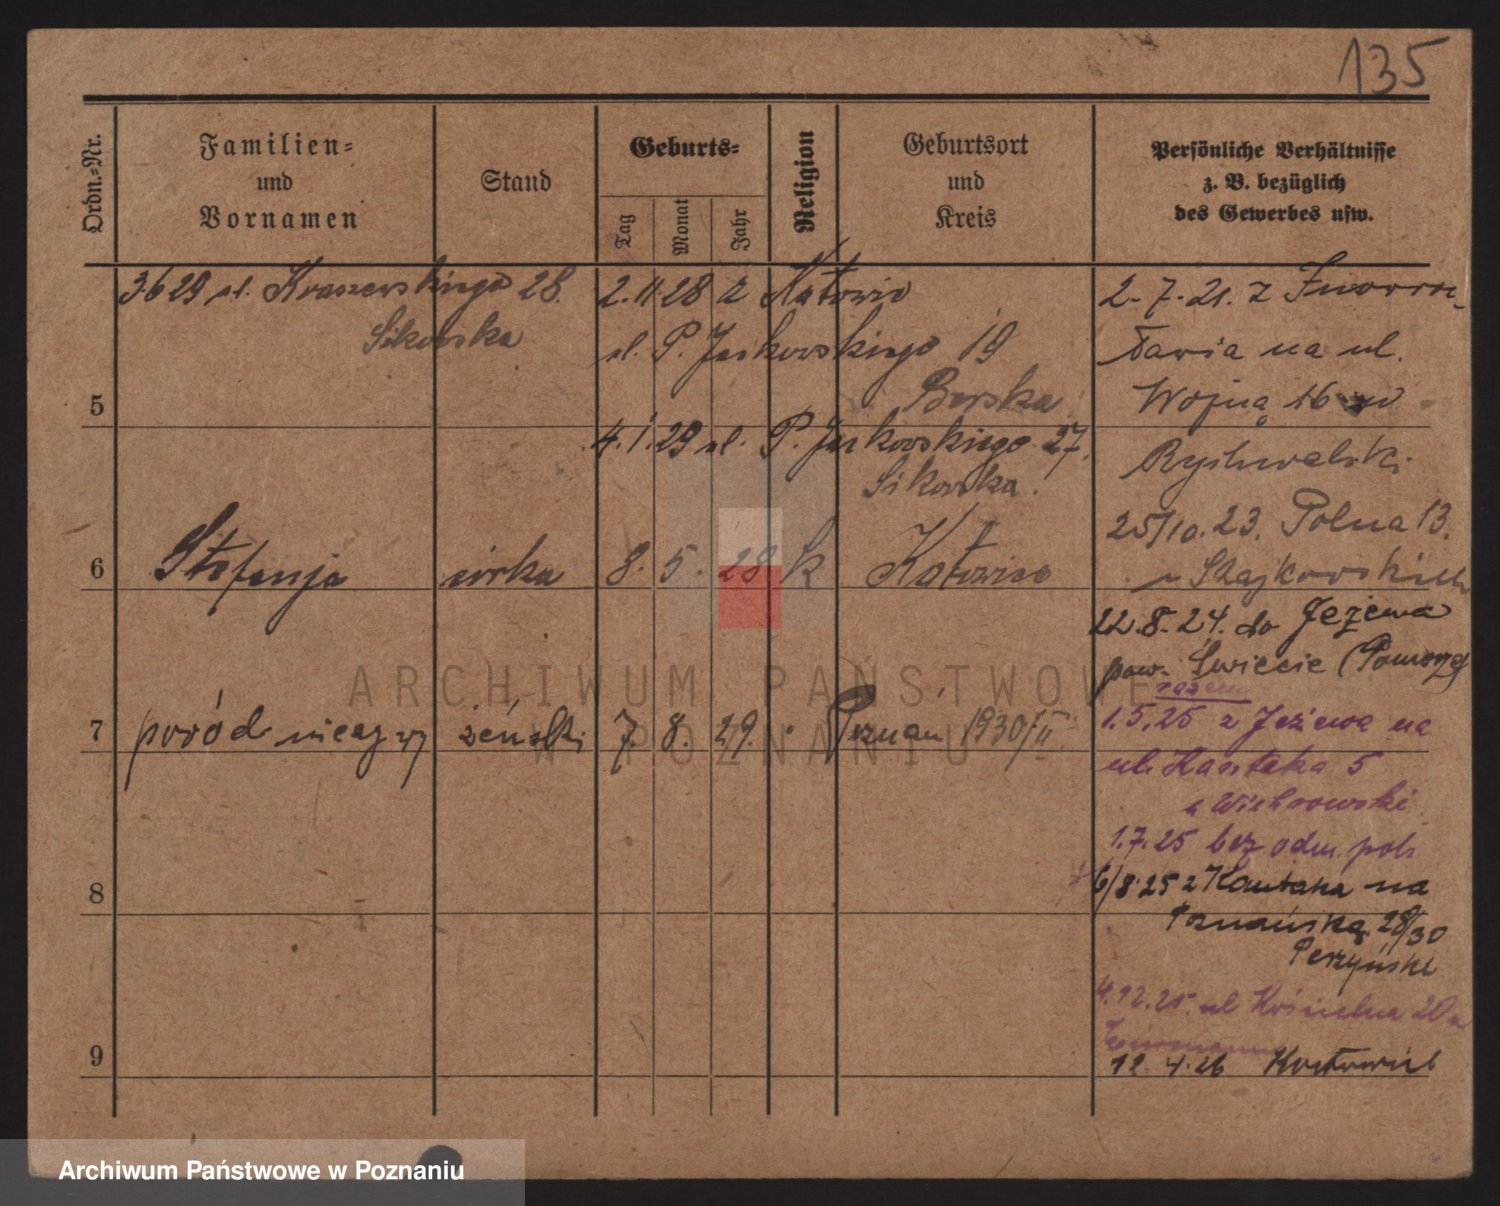 135
Ordn.-Nr.
Familien-
und
Vornamen
Stand
Geburts-
Tag
Monat
Jahr
Religion
Geburtsort
und
Kreis
Persönliche Verhältnisse
z. B. bezüglich
des Gewerbes usw.
3.6 29 ul. Kraszewskiego 28.
Sikorska
2. 11 28 z Katowic
ul. P. Jackowskiego 19
Borska
4. 1. 29 ul. P. Jackowskiego 27.
Sikorska.
5
6
Stefanja córka 8. 5. 28 k Katowice
7
poród nieżywy żeński 7. 8. 29. Poznań 1930/II.
8
9
2. 7. 21. z Inowroc-
ławia na ul.
Wojną 16
Rychwalski
25/10. 23. Polna 13.
u Szajkowskich
22. 8. 24. do Jeżewa
pow. Świecie (Pomorze)
razem
1.5.25 z Jeżewa na
ul. Kantaka 5
u Wichrowski
1.7.25 bez odm. pob.
6/8 25 z Kantaka na
Poznańską 28/30
Perzyński
4.12.25. ul Kościelna 20
12. 4. 26 Katowic
ARCHIWUM PAŃSTWOWE
W POZNANIU
Archiwum Państwowe w Poznaniu